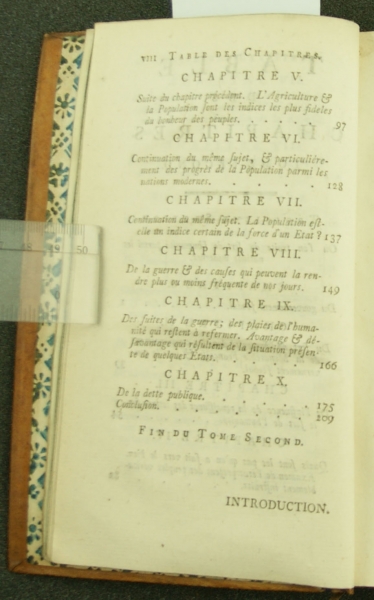 VIII TABLE DES CHAPITRES.
CHAPITRE V.
Suite du chapitre précédent. L'Agriculture &
la Population sont les indices les plus fideles
du bonheur des peuples. . . . . . 97
CHAPITRE VI.
Continuation du même sujet, & particuliére-
ment des progrès de la Population parmi les
nations modernes. . . . . . 128
CHAPITRE VII.
Continuation du même sujet. La Population est-
elle un indice certain de la force d'un Etat ? 137
CHAPITRE VIII.
De la guerre & des causes qui peuvent la ren-
dre plus ou moins fréquente de nos jours. 149
CHAPITRE IX.
Des suites de la guerre; des plaies de l'huma-
nité qui restent à refermer. Avantage & dé-
savantage qui résultent de la situation présen-
te de quelques Etats. . . . . . 166
CHAPITRE X.
De la dette publique. . . . . . 175
Conclusion. . . . . . . . 209
FIN DU TOME SECOND.
INTRODUCTION.
50